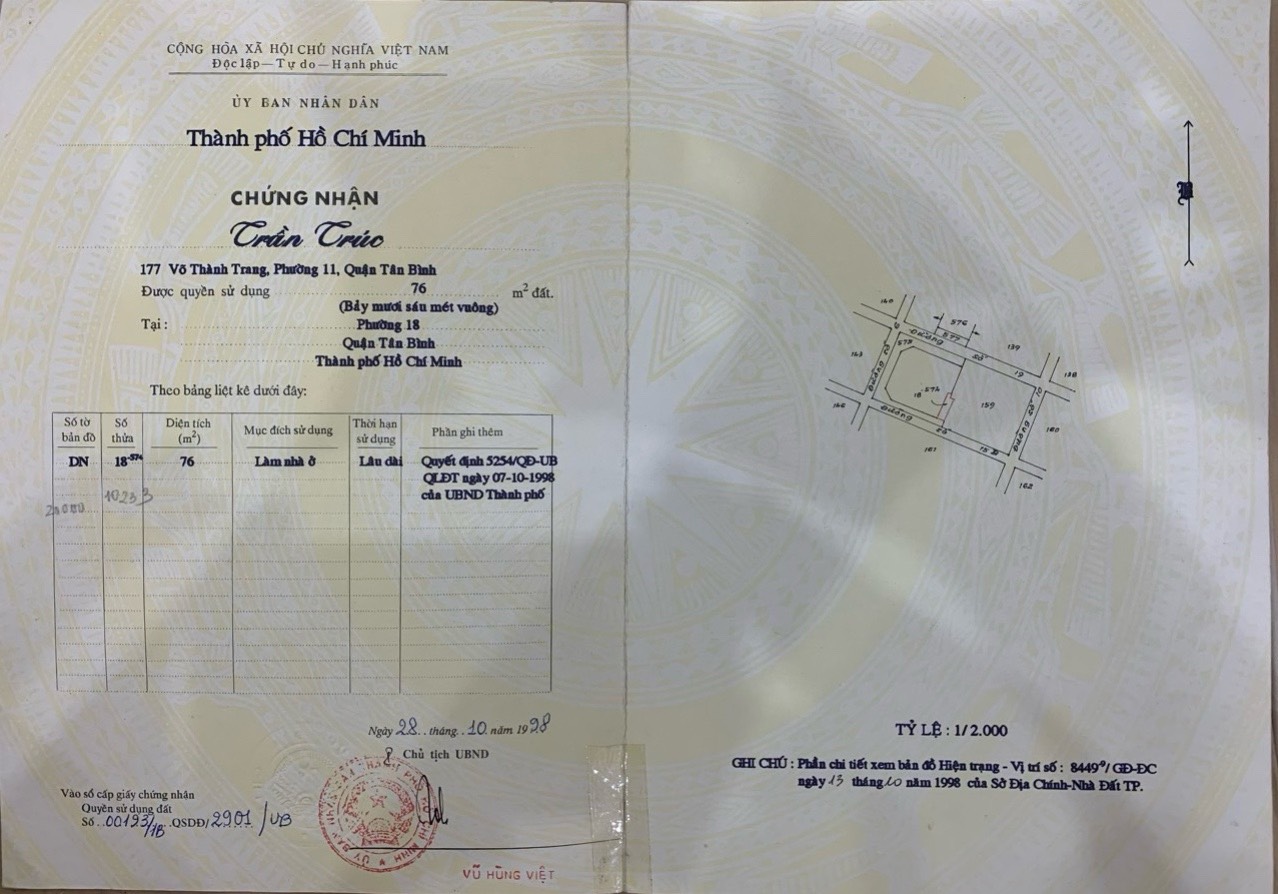 CỘNG HÒA XÃ HỘI CHỦ NGHĨA VIỆT NAM
Độc lập — Tự do — Hạnh phúc
ỦY BAN NHÂN DÂN
Thành phố Hồ Chí Minh
CHỨNG NHẬN
Trần Trúc
177 Võ Thành Trang, Phường 11, Quận Tân Bình
Được quyền sử dụng 76 m² đất.
(Bảy mươi sáu mét vuông)
Tại : Phường 18
Quận Tân Bình
Thành phố Hồ Chí Minh
Theo bảng liệt kê dưới đây:
Số tờ bản đồ Số thửa Diện tích (m²) Mục đích sử dụng Thời hạn sử dụng Phần ghi thêm
DN 18-574 76 Làm nhà ở Lâu dài Quyết định 5254/QĐ-UB
QLĐT ngày 07-10-1998
của UBND Thành phố
10233
Ngày 28 tháng 10 năm 1998
Chủ tịch UBND
Vào sổ cấp giấy chứng nhận
Quyền sử dụng đất
Số 00193/1B QSDĐ/2901/UB
VŨ HÙNG VIỆT
B
140
576
577
575
Đường số 19
139
138
163
Đường số
574
18
159
Đường số
160
166
Đường số 15
161
162
TỶ LỆ : 1/2.000
GHI CHÚ : Phần chi tiết xem bản đồ Hiện trạng - Vị trí số : 8449⁹/GĐ-ĐC
ngày 13 tháng 10 năm 1998 của Sở Địa Chính-Nhà Đất TP.